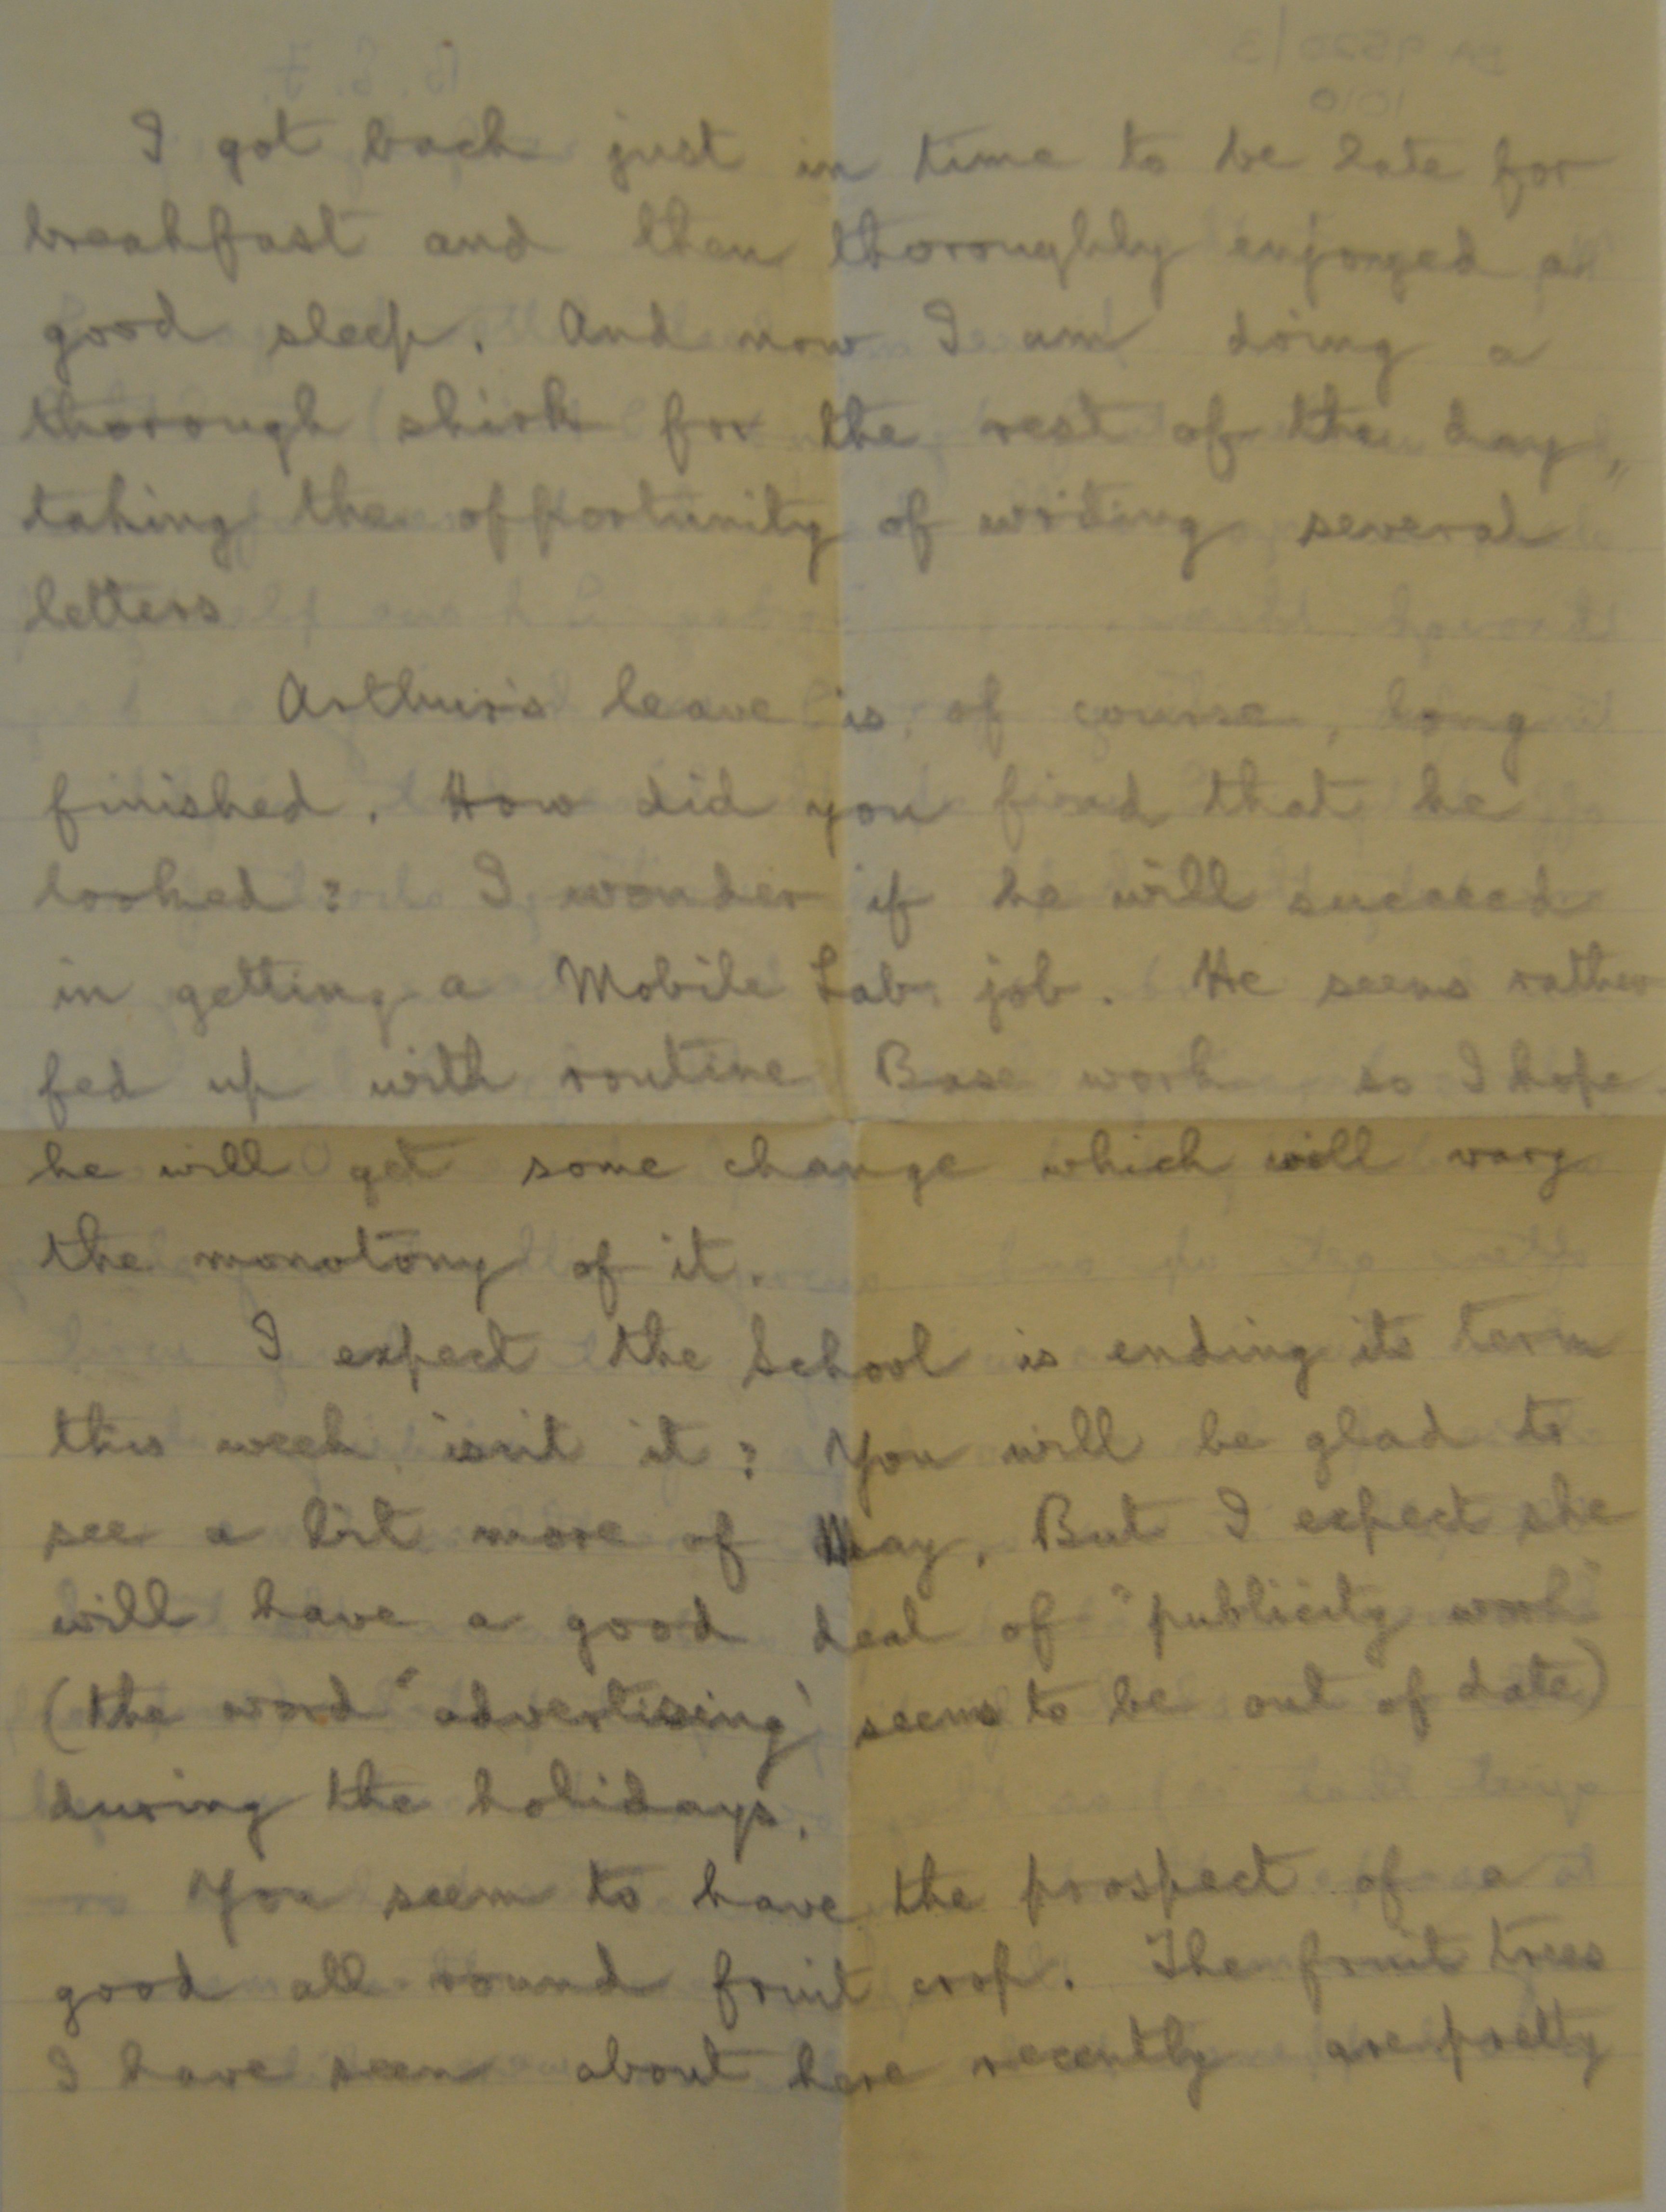 I got back just in time to be late for
breakfast and then thoroughly enjoyed a
good sleep. And now I am doing a
thorough shirk for the rest of the day,
taking the opportunity of writing several
letters
Arthur's leave is, of course, long
finished. How did you find that he
looked? I wonder if he will succeed
in getting a Mobile Lab. job. He seems rather
fed up with routine Base work so I hope
he will get some change which will vary
the monotony of it.
I expect the School is ending its term
this week, isn't it? You will be glad to
see a bit more of May. But I expect she
will have a good deal of "publicity work"
(the word "advertising" seems to be out of date)
during the holidays.
You seem to have the prospect of a
good all round fruit crop. The fruit trees
I have seen about here recently are pretty